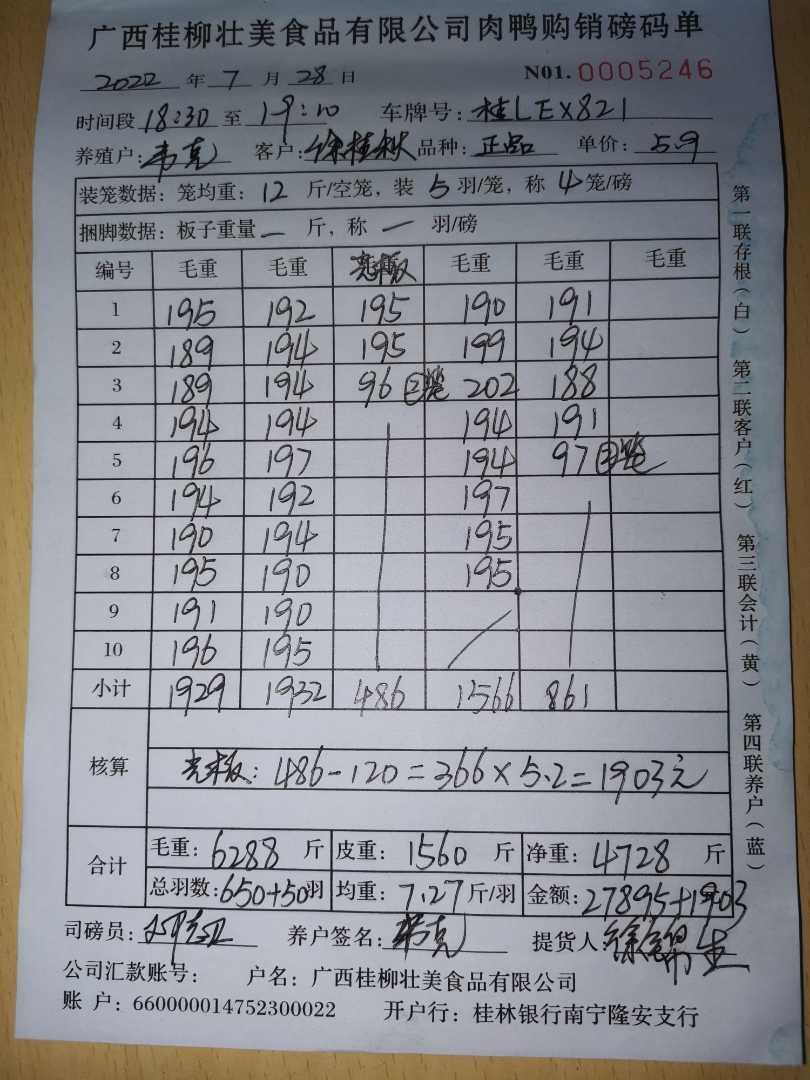 广西桂柳壮美食品有限公司肉鸭购销磅码单
2022 年 7 月 28 日 N01. 0005246
时间段 18:30 至 19:10 车牌号: 桂LEX821
养殖户: 韦克 客户: 徐桂秋 品种: 正品 单价: 5.9
装笼数据: 笼均重: 12 斤/空笼, 装 5 羽/笼, 称 4 笼/磅
捆脚数据: 板子重量 — 斤, 称 — 羽/磅
编号 毛重 毛重 毛重 毛重 毛重
1 195 192 195 190 191
2 189 194 195 199 194
3 189 194 96 2笼 202 188
4 194 194 194 191
5 196 197 194 97 2笼
6 194 192 197
7 190 194 195
8 195 190 195
9 191 190
10 196 195
小计 1929 1932 486 1566 861
核算
486-120=366×5.2=1903元
合计
毛重: 6288 斤 皮重: 1560 斤 净重: 4728 斤
总羽数: 650+50羽 均重: 7.27 斤/羽 金额: 27895+1903
司磅员: 养户签名: 韦克 提货人:
公司汇款账号: 户名: 广西桂柳壮美食品有限公司
账 户: 660000014752300022 开户行: 桂林银行南宁隆安支行
第一联存根(白) 第二联客户(红) 第三联会计(黄) 第四联养户(蓝)